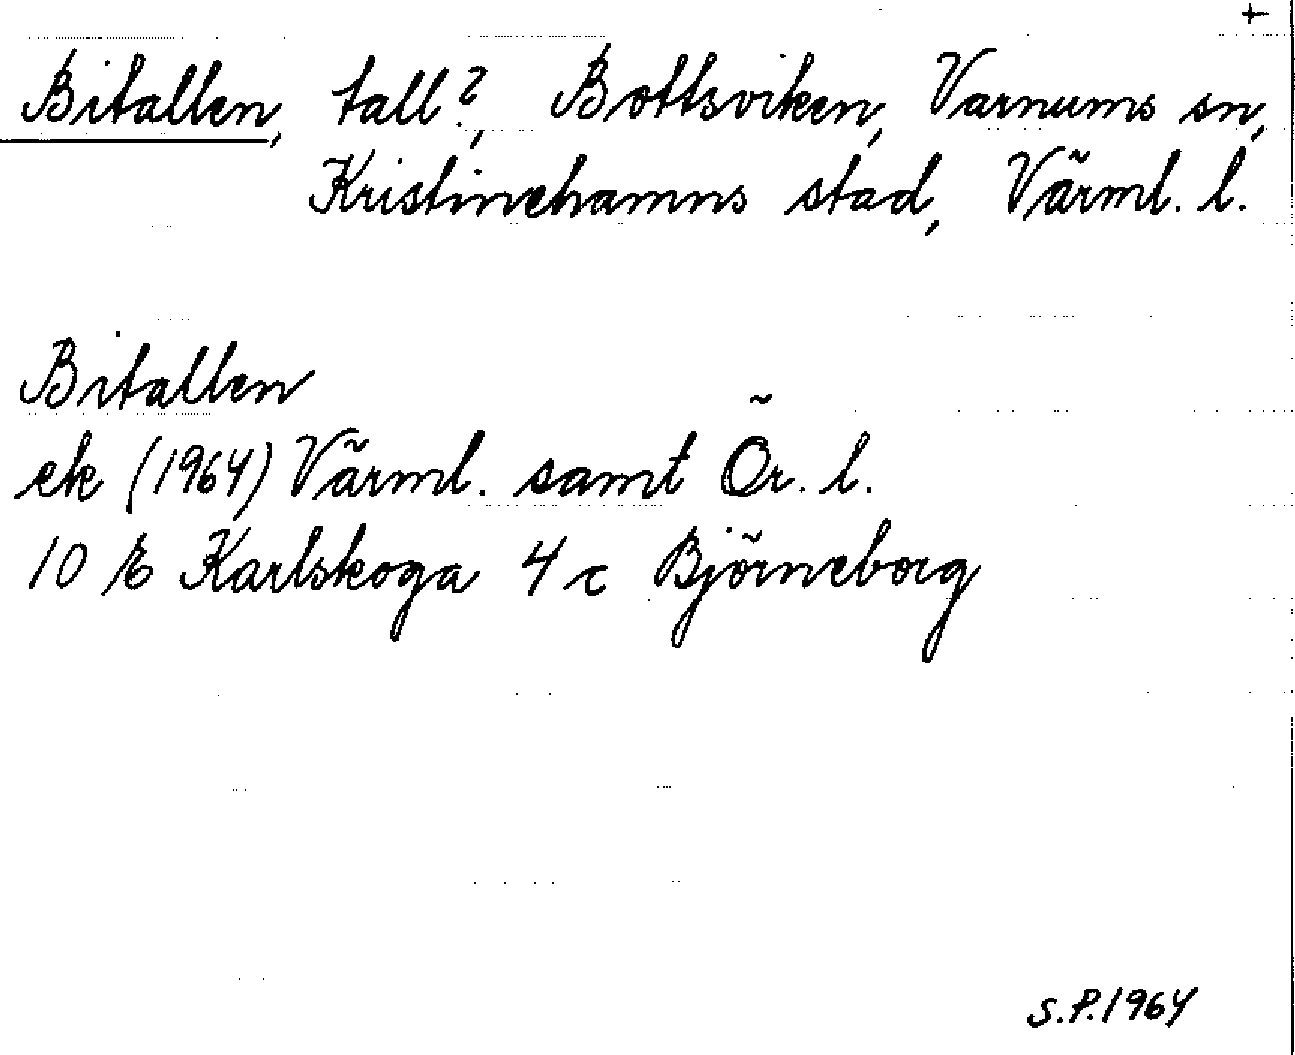 +
Bitallen, tall?, Bottsviken, Varnums sn,
Kristinehamns stad, Värml. l.
Bitallen
ek (1964) Värml. samt Ör. l.
10 E Karlskoga 4 c Björneborg
S.P.1964